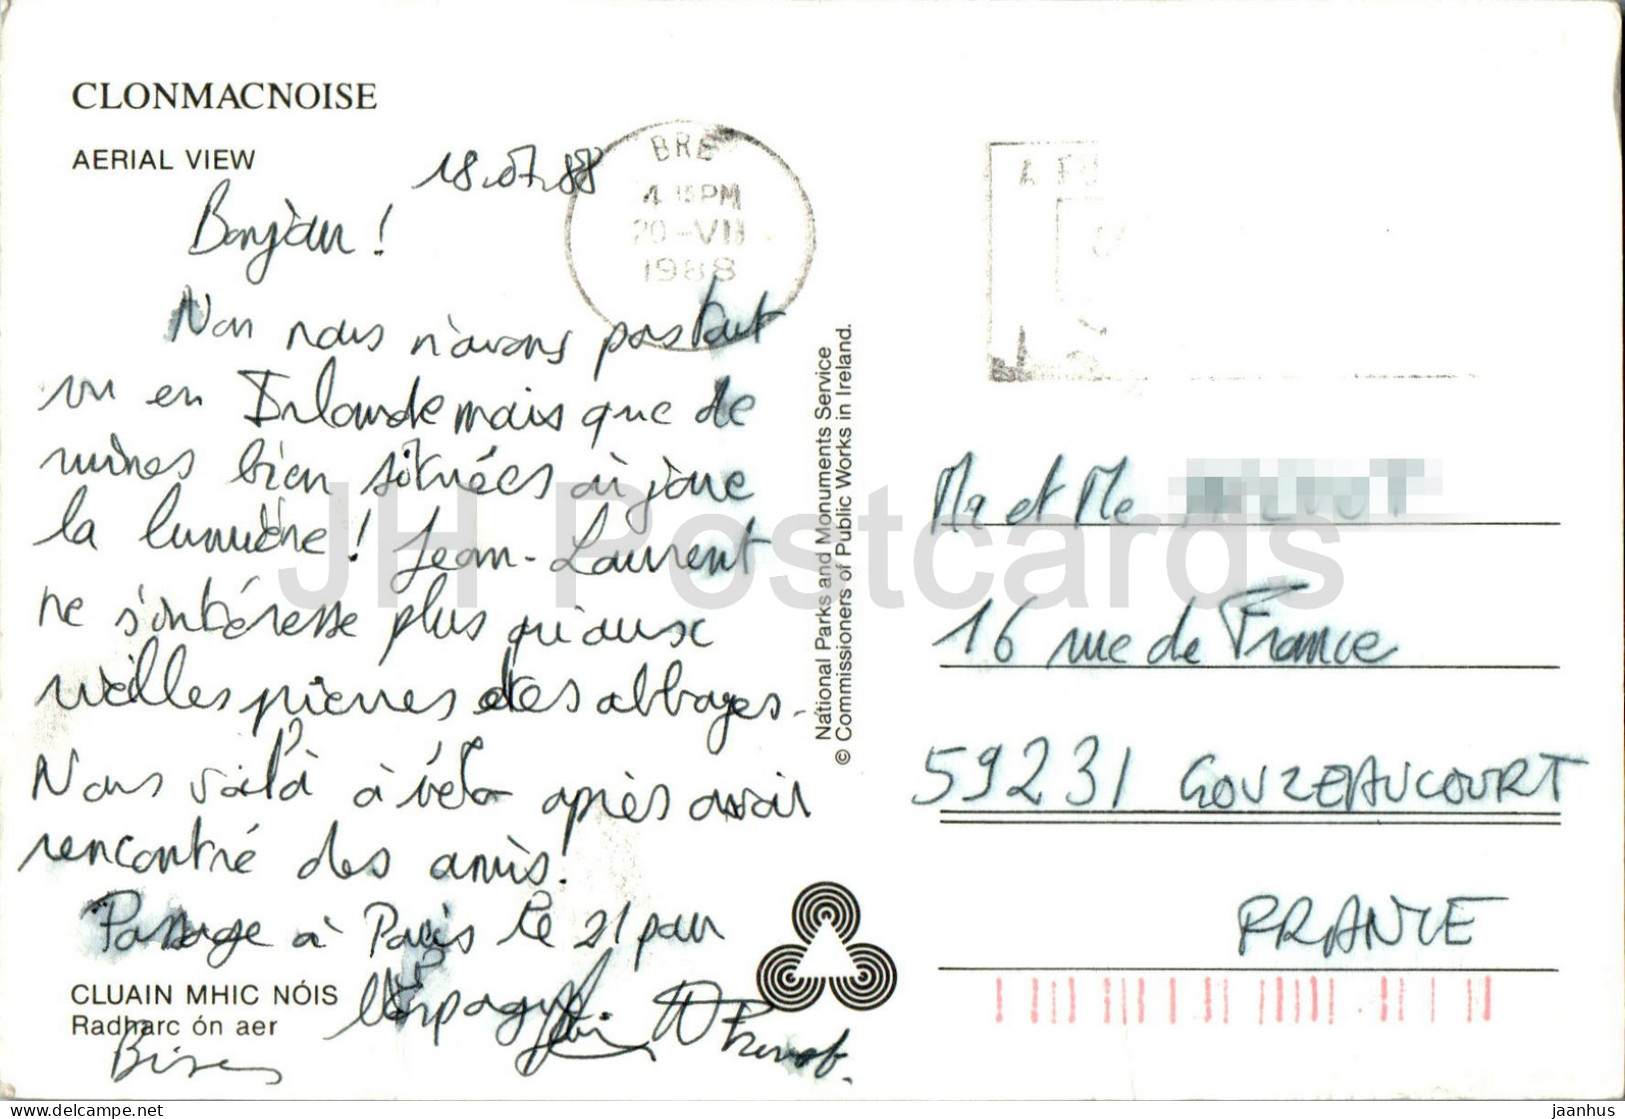 CLONMACNOISE
AERIAL VIEW
18.07.88
BRE
4 15PM
20-VII
1988
Bonjour !
Non nous n'avons pas tout
vu en Irlande mais que de
ruines bien situées où joue
la lumière ! Jean-Laurent
ne s'intéresse plus qu'aux
vieilles pierres des abbayes.
Nous voilà à vélo après avoir
rencontré des amis !
Passage à Paris le 21 pour
l'Espagne
Bises
CLUAIN MHIC NÓIS
Radharc ón aer
National Parks and Monuments Service
© Commissioners of Public Works in Ireland.
Mr et Me
16 rue de France
59231 GOUZEAUCOURT
FRANCE
JH Postcards
delcampe.net
jaanhus